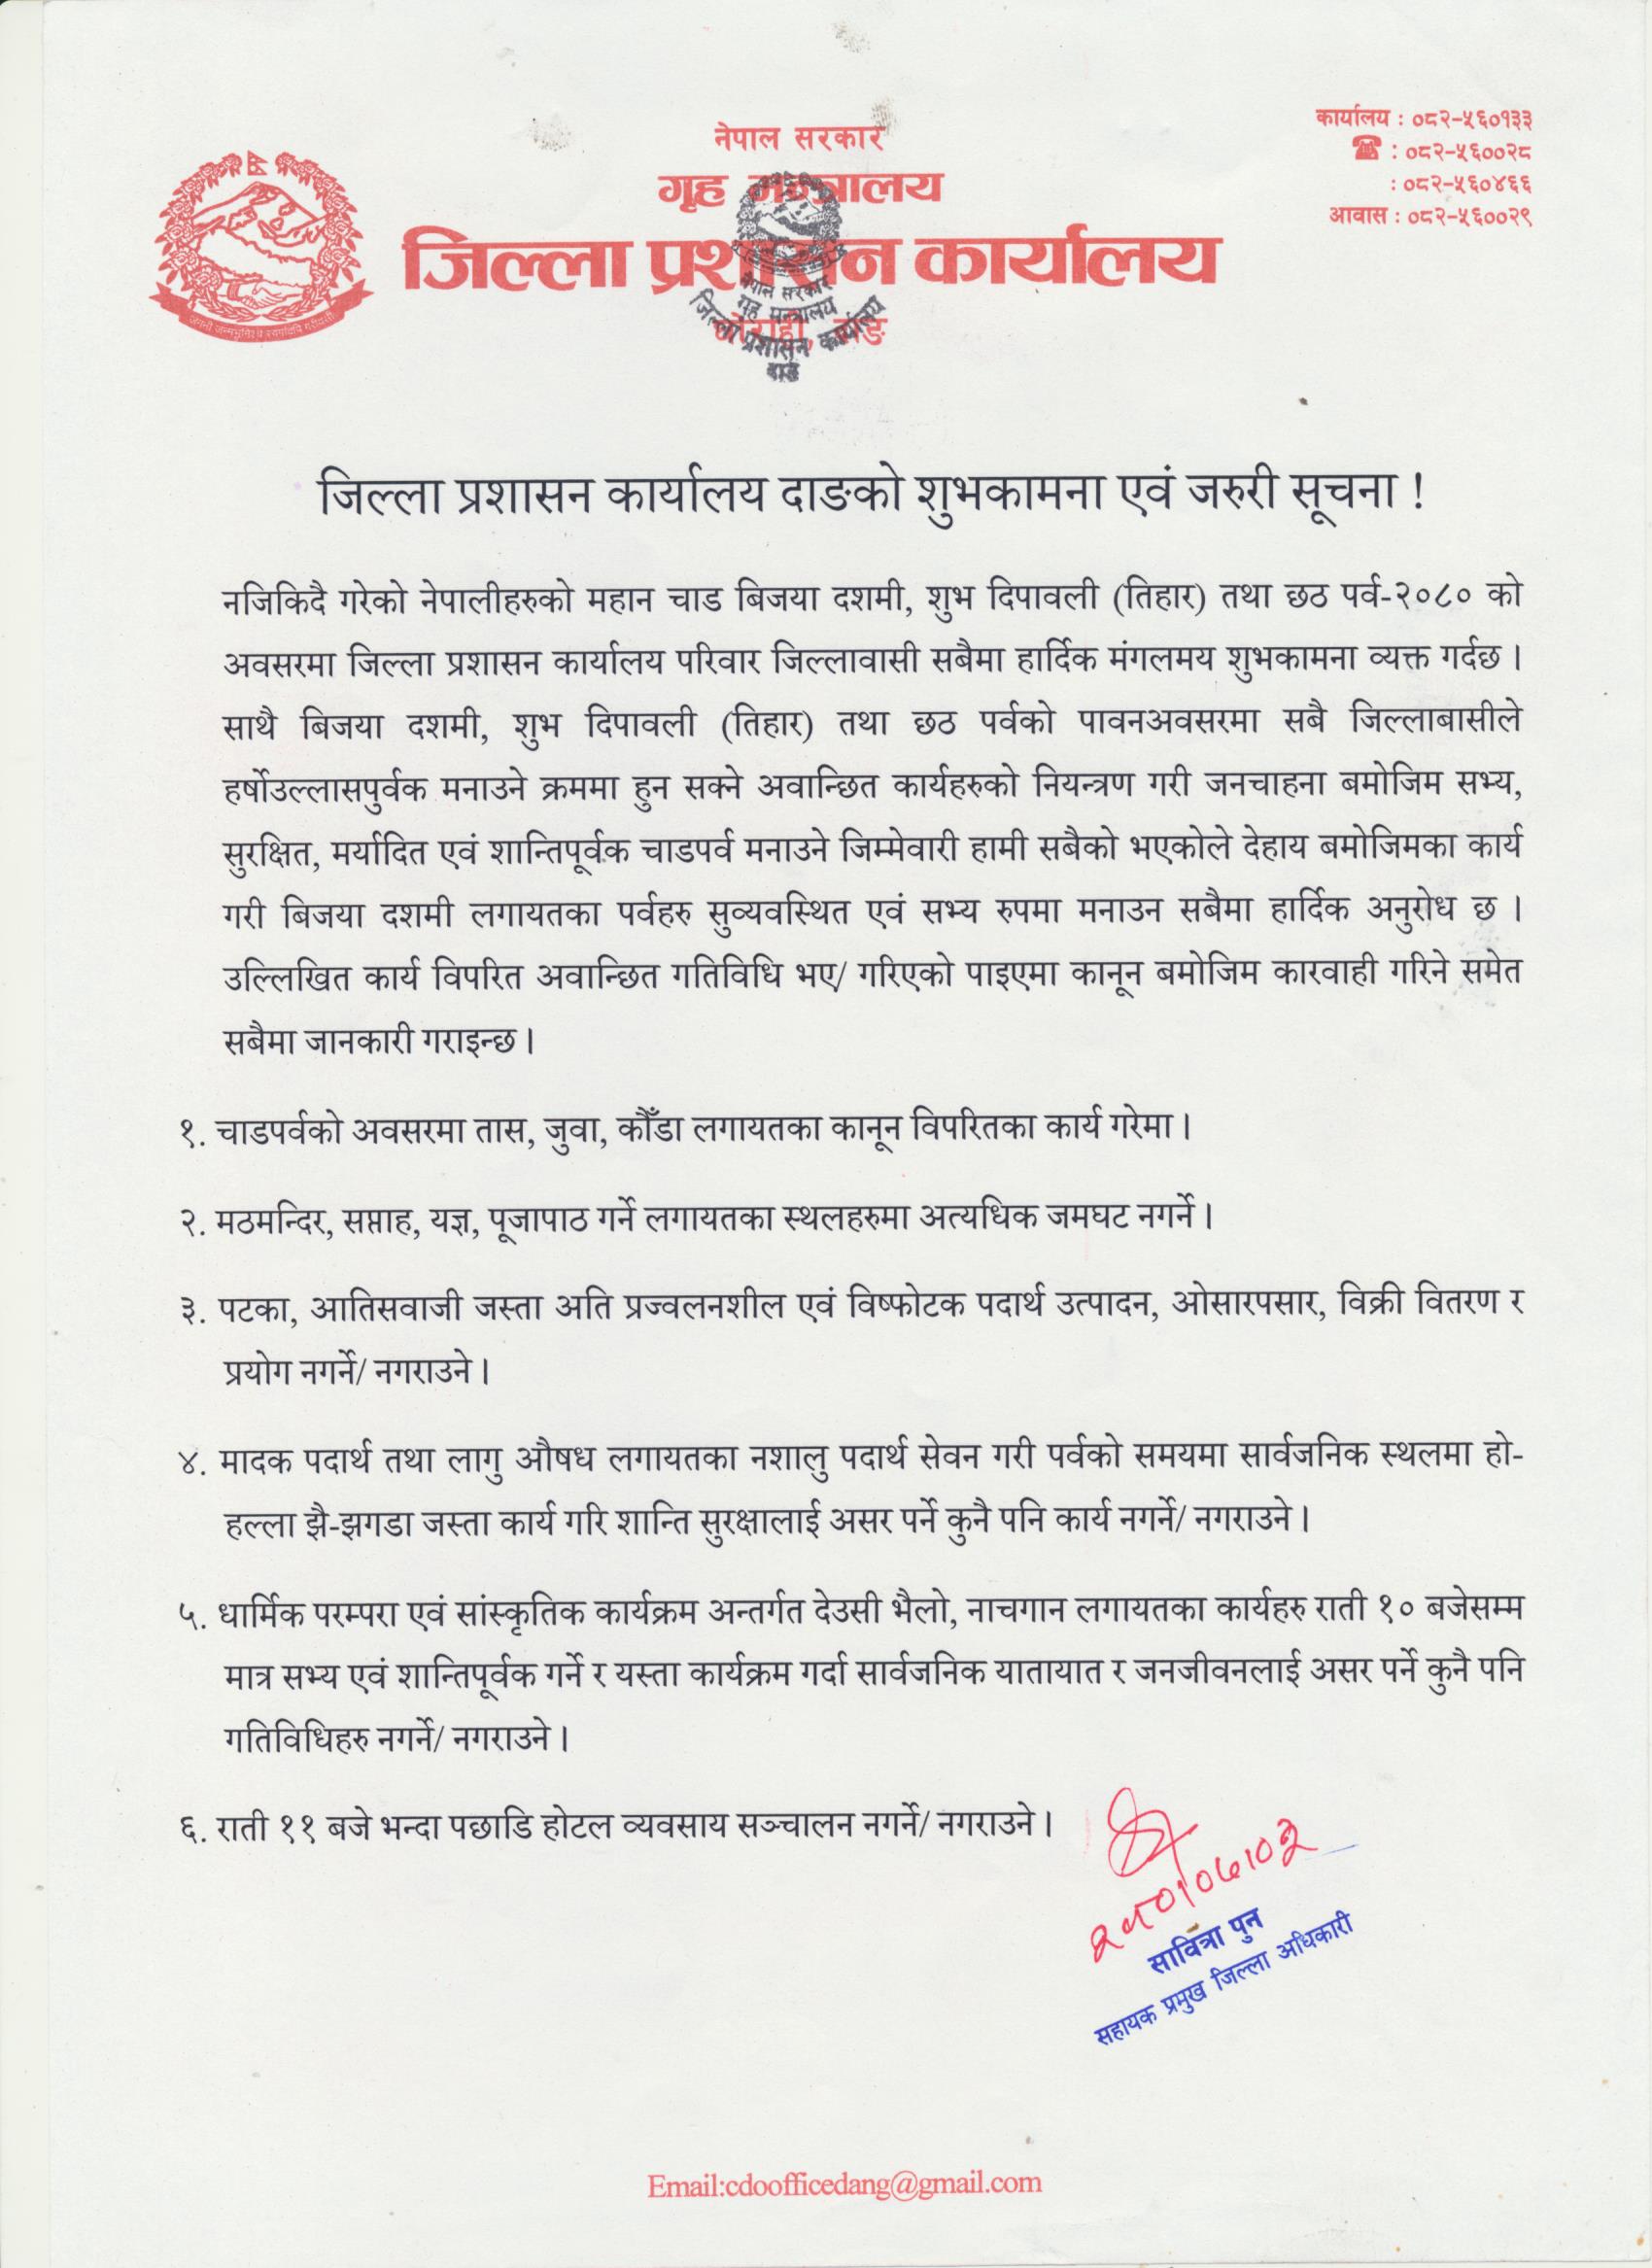 कार्यालय : ०८२-५६०१३३
: ०८२-५६००२८
: ०८२-५६०४६६
आवास : ०८२-५६००२९
नेपाल सरकार
गृह मन्त्रालय
जिल्ला प्रशासन कार्यालय
नेपाल सरकार
गृह मन्त्रालय
जिल्ला प्रशासन कार्यालय
दाङ
जिल्ला प्रशासन कार्यालय दाङको शुभकामना एवं जरुरी सूचना !
नजिकिदै गरेको नेपालीहरुको महान चाड बिजया दशमी, शुभ दिपावली (तिहार) तथा छठ पर्व-२०८० को
अवसरमा जिल्ला प्रशासन कार्यालय परिवार जिल्लावासी सबैमा हार्दिक मंगलमय शुभकामना व्यक्त गर्दछ ।
साथै बिजया दशमी, शुभ दिपावली (तिहार) तथा छठ पर्वको पावनअवसरमा सबै जिल्लाबासीले
हर्षोउल्लासपुर्वक मनाउने क्रममा हुन सक्ने अवान्छित कार्यहरुको नियन्त्रण गरी जनचाहना बमोजिम सभ्य,
सुरक्षित, मर्यादित एवं शान्तिपूर्वक चाडपर्व मनाउने जिम्मेवारी हामी सबैको भएकोले देहाय बमोजिमका कार्य
गरी बिजया दशमी लगायतका पर्वहरु सुव्यवस्थित एवं सभ्य रुपमा मनाउन सबैमा हार्दिक अनुरोध छ ।
उल्लिखित कार्य विपरित अवान्छित गतिविधि भए/ गरिएको पाइएमा कानून बमोजिम कारवाही गरिने समेत
सबैमा जानकारी गराइन्छ ।
१. चाडपर्वको अवसरमा तास, जुवा, कौँडा लगायतका कानून विपरितका कार्य गरेमा ।
२. मठमन्दिर, सप्ताह, यज्ञ, पूजापाठ गर्ने लगायतका स्थलहरुमा अत्यधिक जमघट नगर्ने ।
३. पटका, आतिसवाजी जस्ता अति प्रज्वलनशील एवं विष्फोटक पदार्थ उत्पादन, ओसारपसार, विक्री वितरण र
प्रयोग नगर्ने/ नगराउने ।
४. मादक पदार्थ तथा लागु औषध लगायतका नशालु पदार्थ सेवन गरी पर्वको समयमा सार्वजनिक स्थलमा हो-
हल्ला झै-झगडा जस्ता कार्य गरि शान्ति सुरक्षालाई असर पर्ने कुनै पनि कार्य नगर्ने/ नगराउने ।
५. धार्मिक परम्परा एवं सांस्कृतिक कार्यक्रम अन्तर्गत देउसी भैलो, नाचगान लगायतका कार्यहरु राती १० बजेसम्म
मात्र सभ्य एवं शान्तिपूर्वक गर्ने र यस्ता कार्यक्रम गर्दा सार्वजनिक यातायात र जनजीवनलाई असर पर्ने कुनै पनि
गतिविधिहरु नगर्ने/ नगराउने ।
६. राती ११ बजे भन्दा पछाडि होटल व्यवसाय सञ्चालन नगर्ने/ नगराउने ।
सावित्रा पुन
सहायक प्रमुख जिल्ला अधिकारी
Email:cdoofficedang@gmail.com